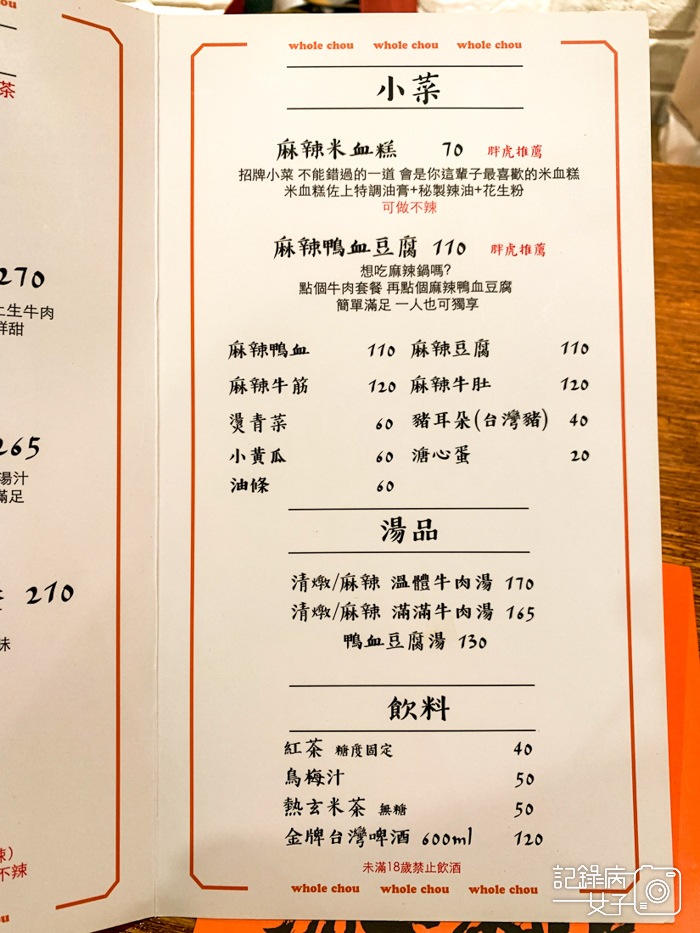 whole chou whole chou whole chou
小菜
麻辣米血糕 70 胖虎推薦
招牌小菜 不能錯過的一道 會是你這輩子最喜歡的米血糕
米血糕佐上特調油膏+秘製辣油+花生粉
可做不辣
麻辣鴨血豆腐 110 胖虎推薦
想吃麻辣鍋嗎?
點個牛肉套餐 再點個麻辣鴨血豆腐
簡單滿足 一人也可獨享
麻辣鴨血 110 麻辣豆腐 110
麻辣牛筋 120 麻辣牛肚 120
燙青菜 60 豬耳朵(台灣豬) 40
小黃瓜 60 溏心蛋 20
油條 60
湯品
清燉/麻辣 溫體牛肉湯 170
清燉/麻辣 滿滿牛肉湯 165
鴨血豆腐湯 130
飲料
紅茶 糖度固定 40
烏梅汁 50
熱玄米茶 無糖 50
金牌台灣啤酒 600ml 120
未滿18歲禁止飲酒
whole chou whole chou whole chou
茶
270
生牛肉
鮮甜
265
湯汁
滿足
210
味
辣)
不辣
記錄病
女子